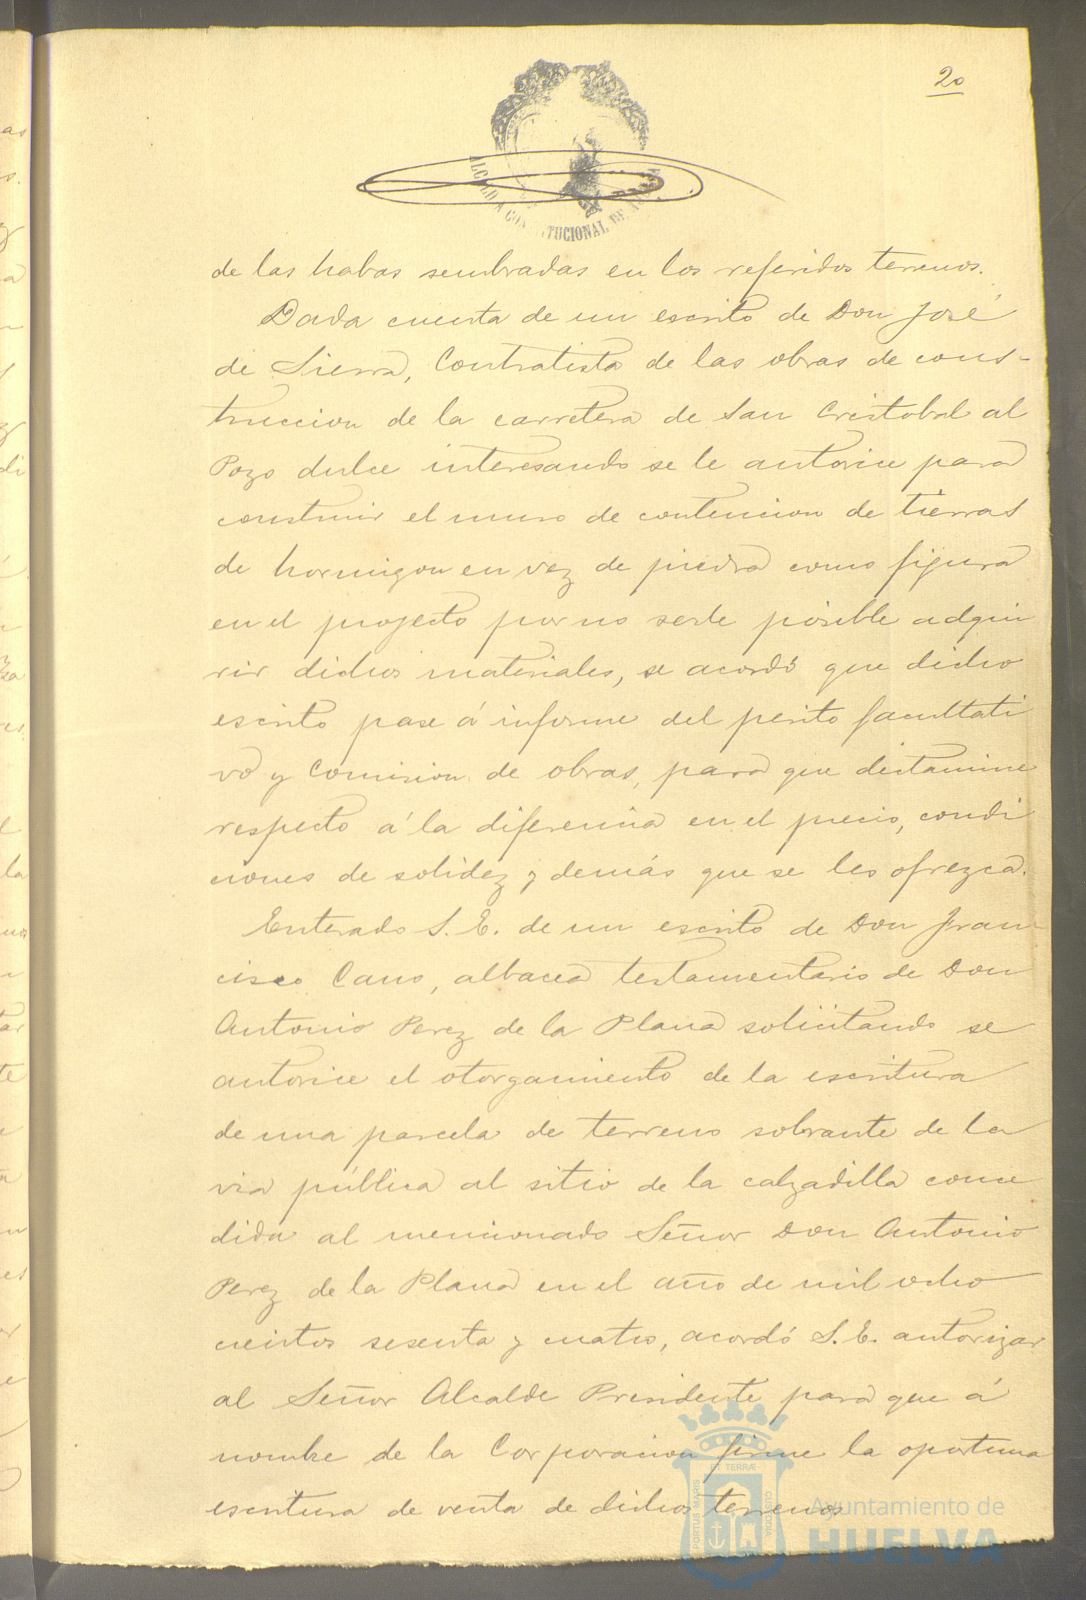 20
ALCALDIA CONSTITUCIONAL DE
de las habas sembradas en los referidos terrenos.
Dada cuenta de un escrito de Don José
de Sierra, Contratista de las obras de cons-
truccion de la carretera de San Cristobal al
Pozo dulce interesando se le autorice para
construir el muro de contencion de tierras
de hormigon en vez de piedra como figura
en el projecto por no serle posible adqui
rir dichos materiales, se acordó que dicho
escrito pase á informe del perito facultati
vo y Comision de obras, para que dictamine
respecto á la diferencia en el precio, condi
ciones de solidez y demás que se les ofrezca.
Enterado S. E. de un escrito de Don Fran
cisco Cano, albacea testamentario de Don
Antonio Perez de la Plana solicitando se
autorice el otorgamiento de la escritura
de una parcela de terreno sobrante de la
via pública al sitio de la calzadilla conce
dida al mencionado Señor Don Antonio
Perez de la Plana en el año de mil ocho
cientos sesenta y cuatro, acordó S. E. autorizar
al Señor Alcalde Presidente para que á
nombre de la Corporacion firme la oportuna
escritura de venta de dichos terrenos
PORTUS MARIS ET TERRÆ CUSTODIA
Ayuntamiento de
HUELVA